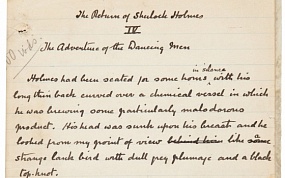 The Return of Sherlock Holmes
IV
The Adventure of the Dancing Men
in silence
Holmes had been seated for some hours, with his
long thin back curved over a chemical vessel in which
he was brewing some particularly malodorous
product. His head was sunk upon his breast and he
looked from my point of view behind him like a
strange lank bird with dull grey plumage and a black
top-knot.